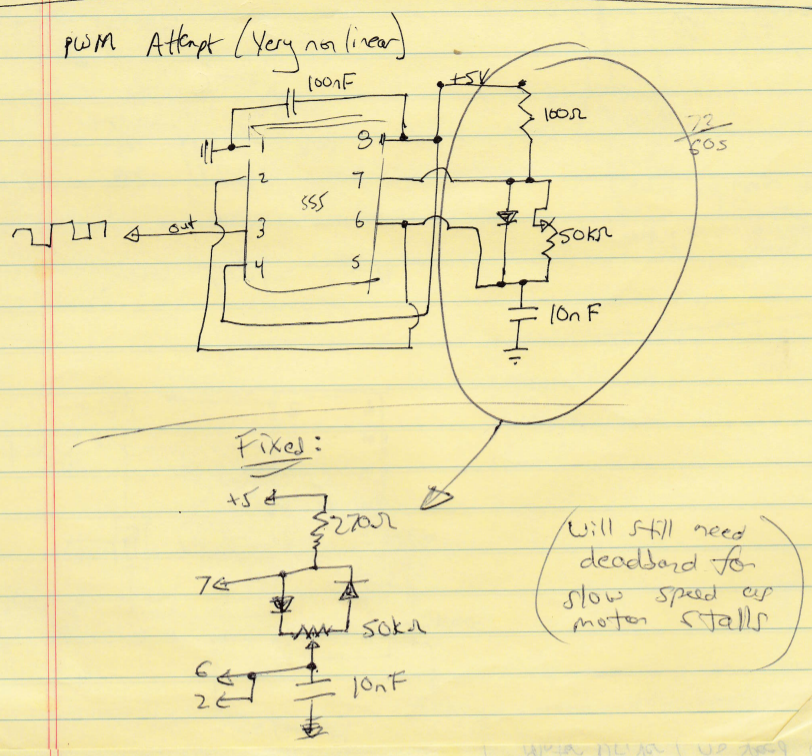 PWM Attempt (Very non linear)
100nF
+5V
100Ω
72
60s
1 8
2 7
555
out 3 6
4 5
50kΩ
10nF
Fixed:
+5
270Ω
7
50kΩ
6
2
10nF
(Will still need
deadband for
slow speed as
motor stalls)